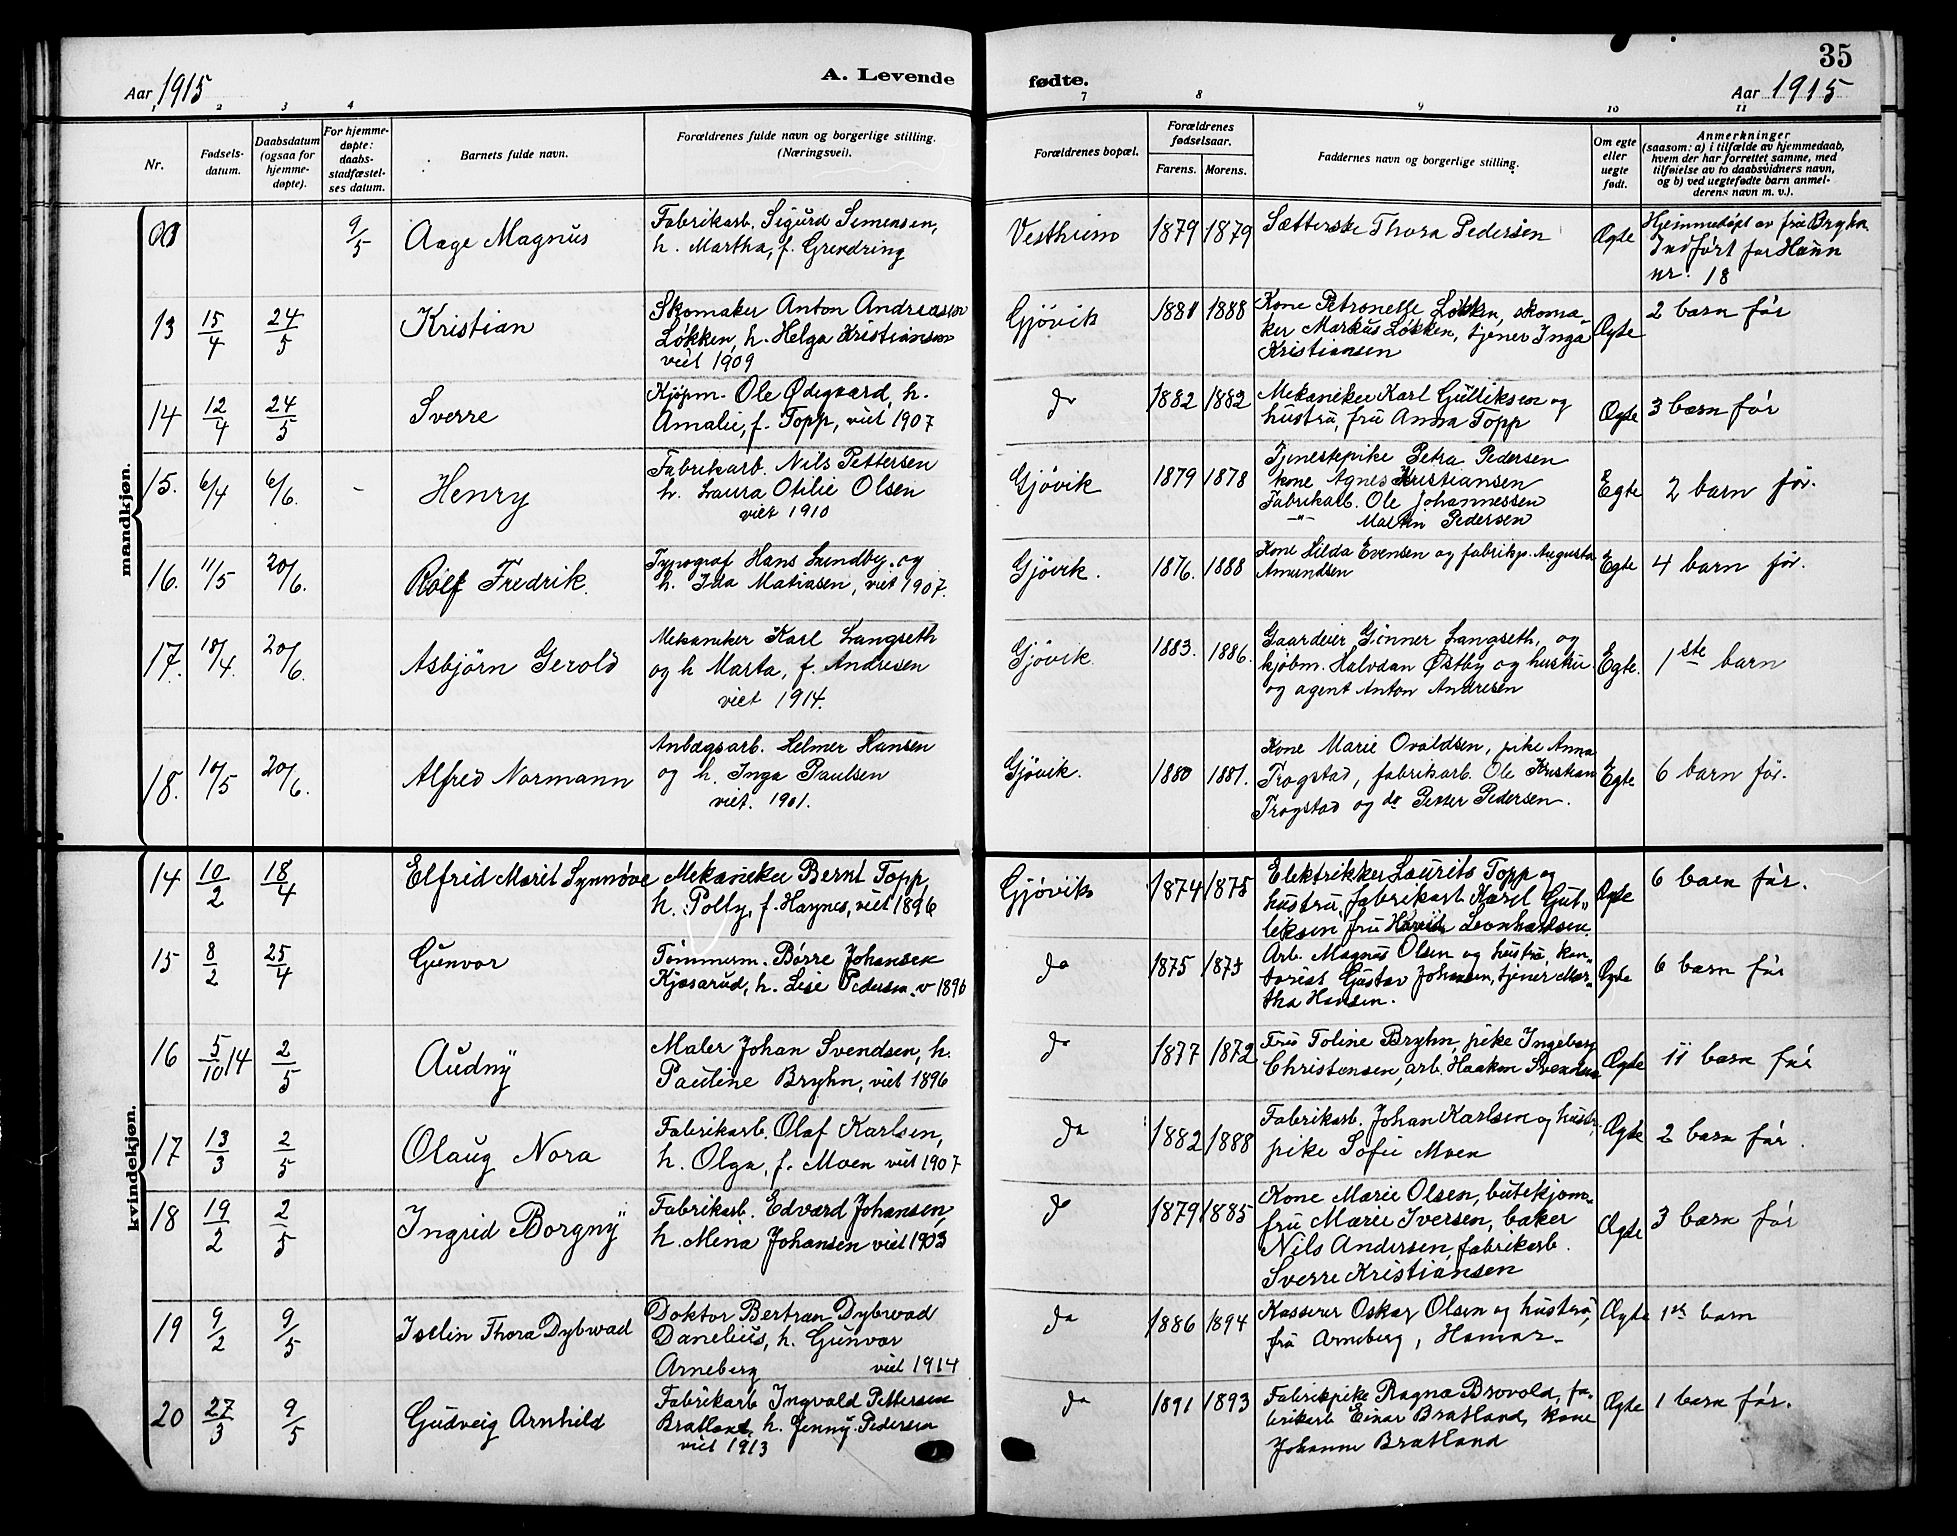 35
Aar 1915
A. Levende fødte.
Aar 1915
1 2 3 4 7 8 9 10 11
Nr.
Fødsels-
datum.
Daabsdatum
(ogsaa for
hjemme-
døpte).
For hjemme-
døpte:
daabs-
stadfæstel-
ses datum.
Barnets fulde navn.
Forældrenes fulde navn og borgerlige stilling.
(Næringsveil.)
Forældrenes bopæl.
Forældrenes
fødselsaar.
Farens. Morens.
Faddernes navn og borgerlige stilling.
Om egte
eller
uegte
født.
Anmerkninger
(saasom: a) i tilfælde av hjemmedaab,
hvem der har forrettet samme, med
tilføielse av to daabsvidners navn,
og b) ved uegtefødte barn anmel-
derens navn m. v.).
mandkjøn.
9/5 Aage Magnus
Fabrikarb. Sigurd Simensen,
h. Martha, f. Grendring
Vestheim 1879 1879
Sætterske Thora Pedersen
Ægte
Hjemmedøpt av frú Bryhn
Indført før Haun
nr. 18
13 15/4 24/5 Kristian
Skomaker Anton Andreassen
Løkken, h. Helga Kristiansen
viet 1909
Gjøvik 1881 1888
Kone Petronelle Løkken, skoma-
ker Markus Løkken, tjener Inga
Kristiansen
Ægte
2 barn før
14 12/4 24/5 Sverre
Kjøpm. Ole Ødegaard, h.
Amalie, f. Topp, viet 1907
do 1882 1882
Mekaniker Karl Gulliksen og
hustru, fru Anna Topp
Ægte
3 barn før
15. 6/4 6/6. - Henry
Fabrikarb. Nils Pettersen
h. Laura Otilie Olsen
viet 1910
Gjøvik 1879 1878
Tjenestepike Petra Pedersen
kone Agnes Kristiansen
Fabrikarb. Ole Johannessen
-"- Martin Pedersen
Egte
2 barn før.
16. 11/5 20/6. Rolf Fredrik.
Typograf Hans Lundby. og
h. Ida Matiasen, viet 1907.
Gjøvik. 1876. 1888
Kone Hilda Evensen og fabrikp. Augusta
Amundsen
Egte
4 barn før.
17. 18/4. 20/6. Asbjørn Gerold
Mekaniker Karl Langseth
og h Marta, f. Andresen
viet 1914.
Gjøvik. 1883. 1886.
Gaardeier Gønner Langseth, og
kjøbm. Halvdan Østby og hustru
og agent Anton Andresen
Egte.
1ste barn
18. 10/5 20/6. Alfred Normann
Anlægsarb. Helmer Hansen
og h. Inga Paulsen
viet. 1901.
Gjøvik. 1880 1881.
Kone Marie Ovaldsen, pike Anna
Trogstad, fabrikarb. Ole Kristian
Trogstad og do Petter Pedersen.
Egte
6 barn før.
kvindekjøn.
14 10/2 18/4 Elfrid Marit Synnøve
Mekaniker Bernt Topp,
h. Polly, f. Haynes, viet 1896
Gjøvik 1874 1875
Elektrikker Laurits Topp og
hustru, fabrikarb. Karel Gul-
leksen fru Leonhardsen.
Ægte
6 barn før.
15 8/2 25/4 Gunvor
Tømmerm. Børre Johansen
Kjøsarud, h. Lise Pedersen. v 1896
do 1875 1873
Arb. Magnus Olsen og hustru, kon-
torist Gustav Johansen, tjener Mar-
tha Hansen.
Ægte
6 barn før
16 5/10 14 2/5 Audny
Maler Johan Svendsen, h.
Pauline Bryhn, viet 1896
do 1877 1872
Fru Toline Bryhn, pike Ingeborg
Christensen, arb. Haakon Svendsen
Ægte
11 barn før
17 13/3 2/5 Olaug Nora
Fabrikarb. Olaf Karlsen,
h. Olga, f. Moen viet 1907
do 1882 1888
Fabrikarb. Johan Karlsen og hustr,
pike Sofie Moen
Ægte
2 barn før.
18 19/2 2/5 Ingrid Borgny
Fabrikarb. Edvard Johansen,
h. Mina Johansen viet 1903
do 1879 1885
Kone Marie Olsen, butikjom-
fru Marie Iversen, baker
Nils Andersen, fabrikarb.
Sverre Kristiansen
Ægte
3 barn før
19 9/2 9/5 Iselin Thora Dybwad
Doktor Bertran Dybwad
Danelius, h. Gunvor
Arneberg viet 1914
do 1886 1894
Kasserer Oskar Olsen og hustru,
fru Arneberg, Hamar-
Ægte
1ste barn
20 27/3 9/5 Gudveig Arnhild
Fabrikarb Ingvald Pettersen
Bratland, h. Jenny Pedersen
viet 1913
do 1891 1893
Fabrikpike Ragna Brovold, fa-
brikarb Einar Bratland, kone
Johanne Bratland
Ægte
1 barn før.